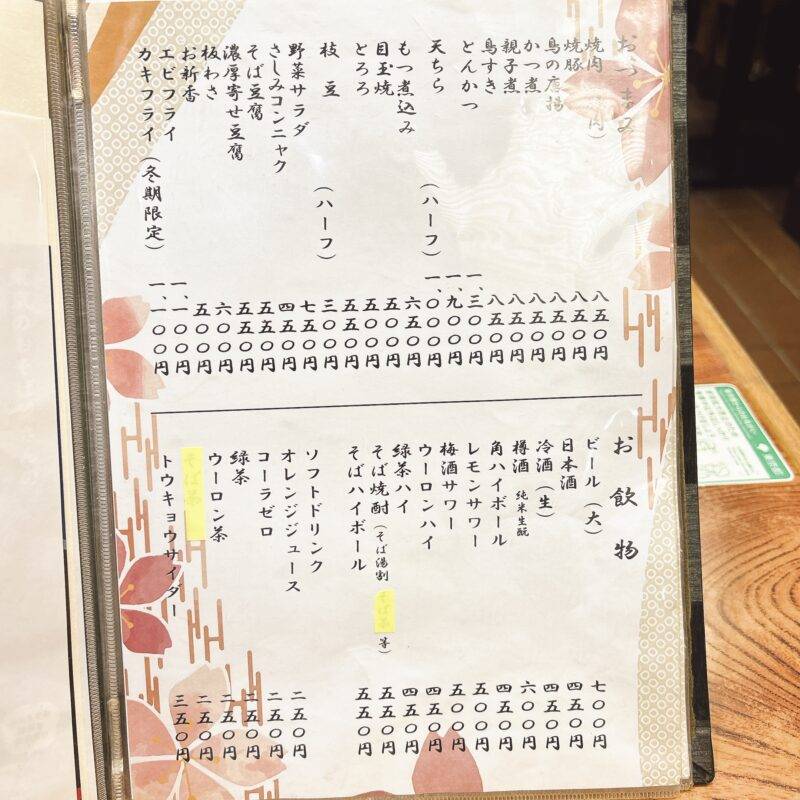 おつまみ
焼肉 八五〇円
焼豚 八五〇円
鳥の唐揚 八五〇円
かつ煮 八五〇円
親子煮 八五〇円
鳥すき 八五〇円
とんかつ 一、三〇〇円
天ちら 一、九〇〇円
(ハーフ) 一、〇〇〇円
もつ煮込み 六五〇円
目玉焼 五〇〇円
とろろ 五〇〇円
枝豆 五五〇円
(ハーフ) 三〇〇円
野菜サラダ 七五〇円
さしみコンニャク 四五〇円
そば豆腐 五五〇円
濃厚寄せ豆腐 五五〇円
板わさ 六〇〇円
お新香 五〇〇円
エビフライ 一、一〇〇円
カキフライ(冬期限定) 一、一〇〇円
お飲物
ビール(大) 七〇〇円
日本酒 四五〇円
冷酒(生) 四五〇円
樽酒 純米生酛 六〇〇円
角ハイボール 四五〇円
レモンサワー 五〇〇円
梅酒サワー 五〇〇円
ウーロンハイ 四五〇円
緑茶ハイ 四五〇円
そば焼酎(そば湯割 そば茶 等) 五五〇円
そばハイボール 五五〇円
ソフトドリンク
オレンジジュース 二五〇円
コーラゼロ 二五〇円
緑茶 二五〇円
ウーロン茶 二五〇円
そば茶 二五〇円
トウキョウサイダー 三五〇円